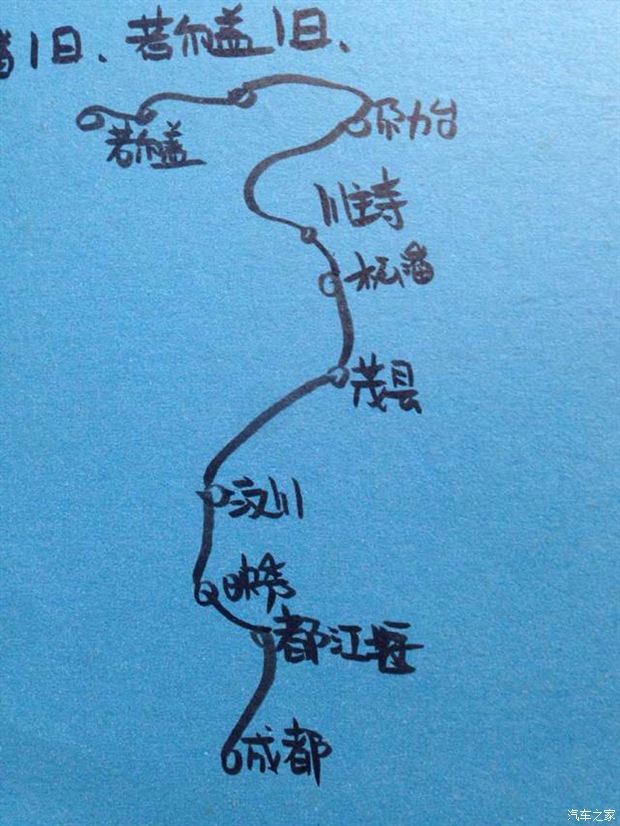 潘1日、若尔盖1日、
尕力台
若尔盖
川主寺
松潘
茂县
汶川
映秀
都江堰
成都
汽车之家